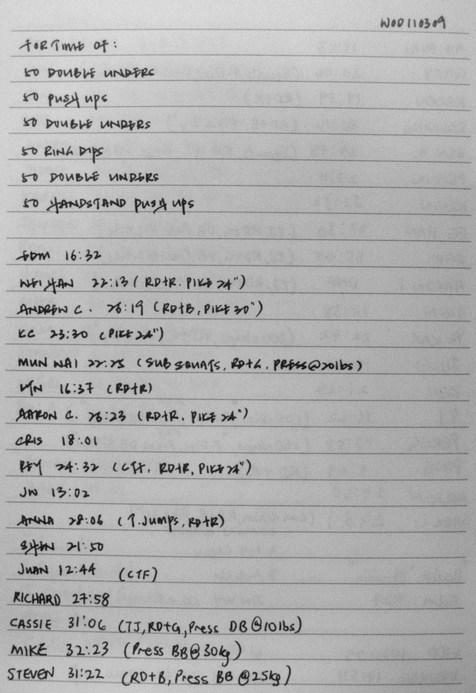 WOD110309
FOR TIME OF:
50 DOUBLE UNDERS
50 PUSH UPS
50 DOUBLE UNDERS
50 RING DIPS
50 DOUBLE UNDERS
50 HANDSTAND PUSH UPS
16:32
WEI HAN 22:13 (RD+R. PIKE 24")
ANDREW C. 28:19 (RD+B, PIKE 30")
KC 23:30 (PIKE 24")
MUN WAI 22:25 (SUB SQUATS, RD+G. PRESS@20lbs)
16:37 (RD+R)
AARON C. 28:23 (RD+R. PIKE 24")
CRIS 18:01
24:32 (CTF. RD+R, PIKE 24")
JN 13:02
ANNA 28:06 (T.JUMPS, RD+R)
SHAN 21:50
JUAN 12:44 (CTF)
RICHARD 27:58
CASSIE 31:06 (TJ, RD+G, Press DB@10lbs)
MIKE 32:23 (Press BB@30kg)
STEVEN 31:22 (RD+B, Press BB@25kg)